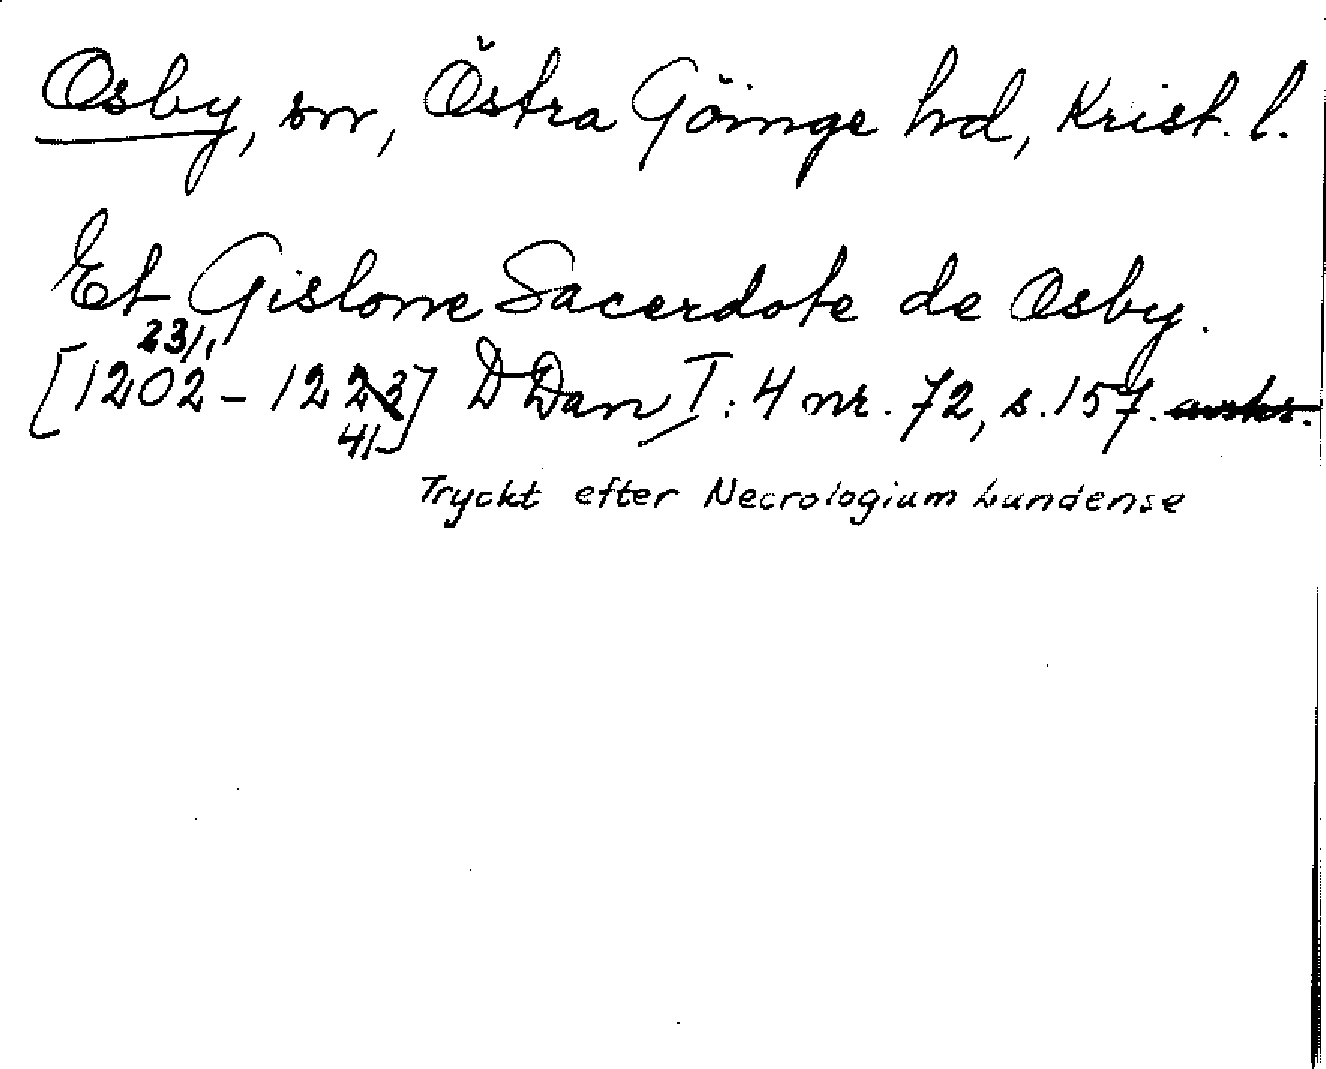 Osby, sn, Östra Göinge hd, Krist. l.
Et Gislone Sacerdote de Osby.
23/1
[1202 - 1223] DDan I: 4 nr. 72, s. 157. avskr.
41
Tryckt efter Necrologium Lundense